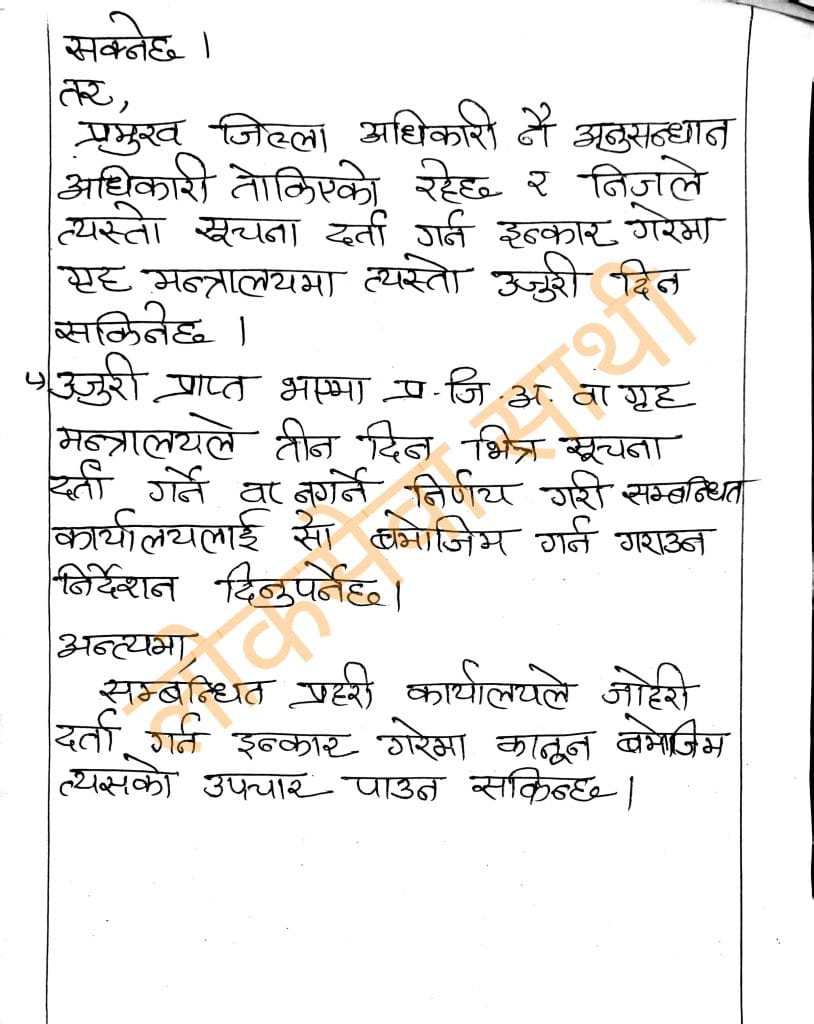 सक्नेछ ।
तर,
प्रमुख जिल्ला अधिकारी नै अनुसन्धान
अधिकारी तोकिएको रहेछ र निजले
त्यस्तो सूचना दर्ता गर्न इन्कार गरेमा
गृह मन्त्रालयमा त्यस्तो उजुरी दिन
सकिनेछ ।
५) उजुरी प्राप्त भएमा प्र.जि.अ. वा गृह
मन्त्रालयले तीन दिन भित्र सूचना
दर्ता गर्ने वा नगर्ने निर्णय गरी सम्बन्धित
कार्यालयलाई सो बमोजिम गर्न गराउन
निर्देशन दिनुपर्नेछ ।
अन्त्यमा,
सम्बन्धित प्रहरी कार्यालयले जाहेरी
दर्ता गर्न इन्कार गरेमा कानून बमोजिम
त्यसको उपचार पाउन सकिन्छ ।
लोकसेवा साथी